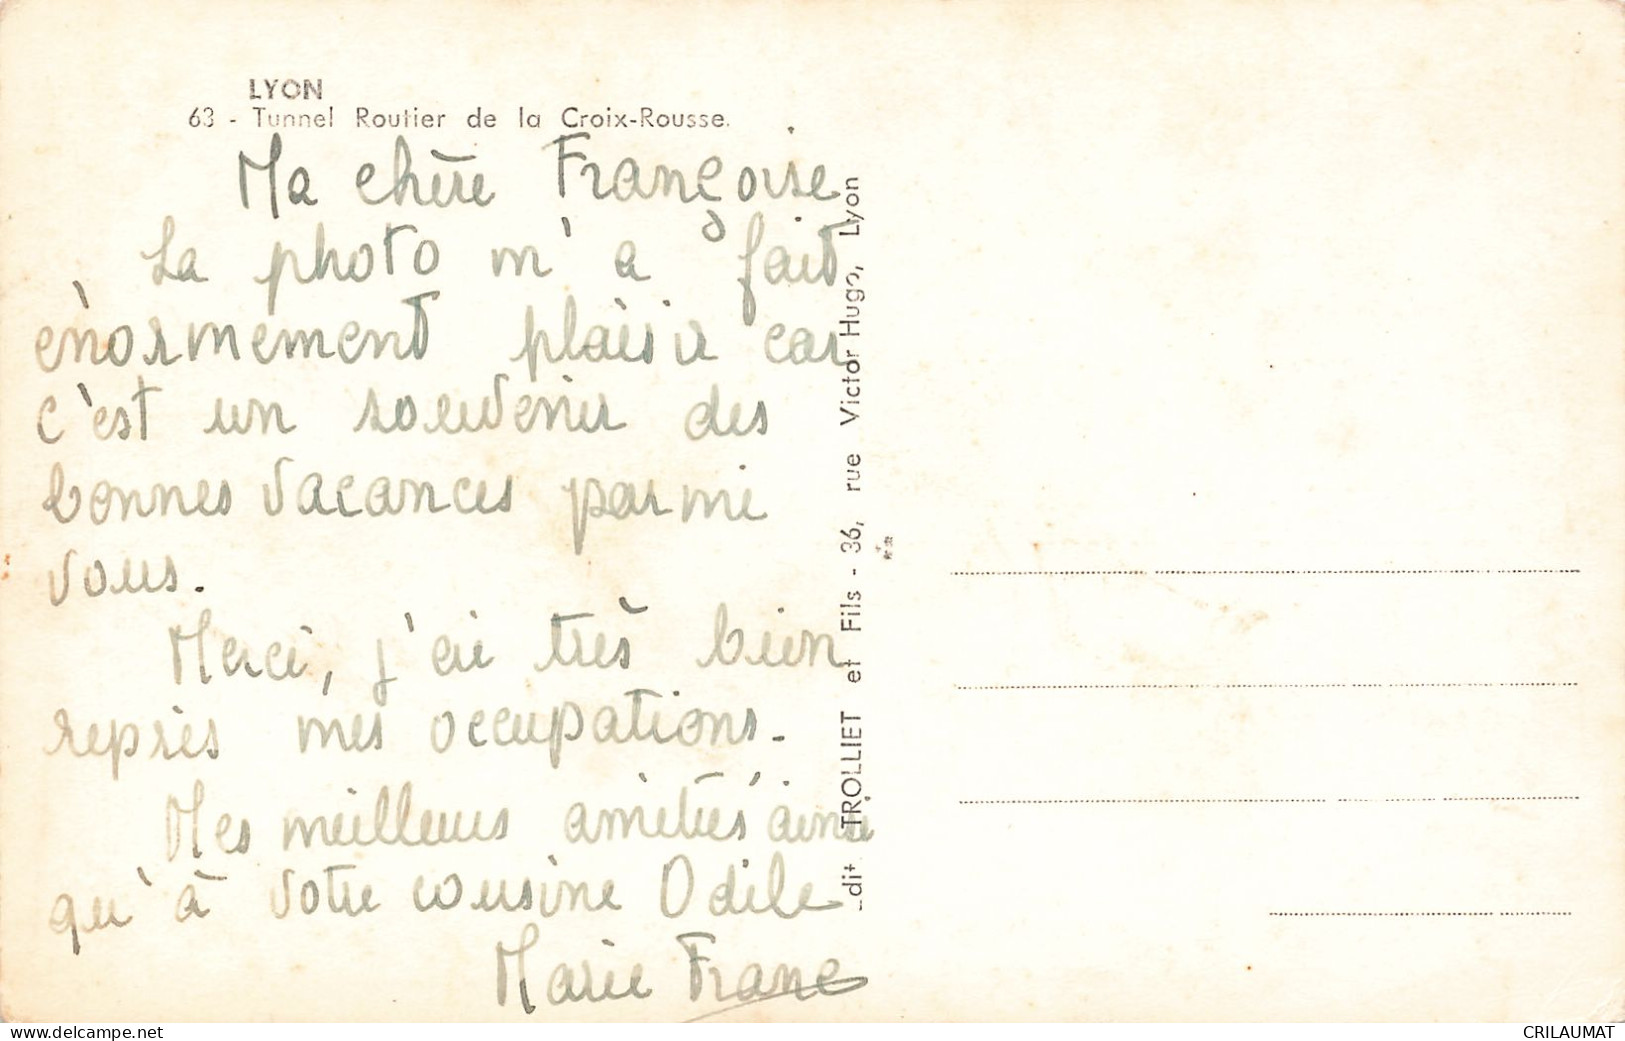 LYON
63 - Tunnel Routier de la Croix-Rousse.
Ma chère Françoise
La photo m'a fait
énormément plaisir car
c'est un souvenir des
bonnes vacances parmi
vous.
Merci, j'ai très bien
repris mes occupations.
Mes meilleurs amitiés ainsi
qu'à votre cousine Odile
Marie France
Edit. TROLLIET et Fils - 36, rue Victor Hugo, Lyon
www.delcampe.net
CRILAUMAT